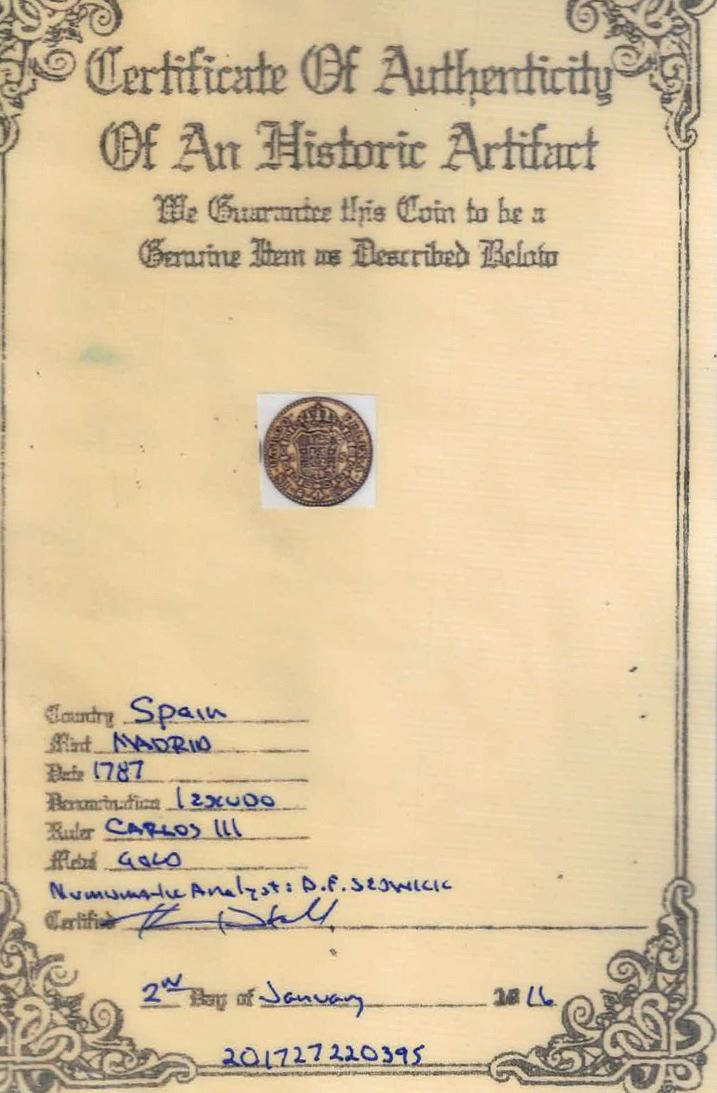 Certificate Of Authenticity
Of An Historic Artifact
We Guarantee this Coin to be a
Genuine Item as Described Below
Country Spain
Mint MADRID
Date 1787
Denomination 1 escudo
Ruler CARLOS III
Metal GOLD
Numismatic Analyst: D.F. SEDWICK
Certified
2nd Day of January 2016
201727220395